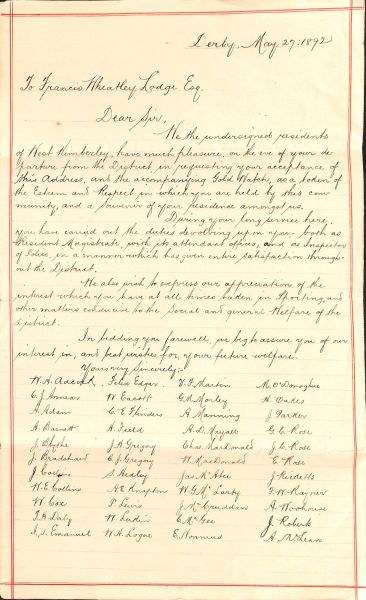 Derby, May 27: 1892
To Francis Wheatley Lodge Esq.
Dear Sir,
We the undersigned residents
of West Kimberley, have much pleasure, on the eve of your de-
parture from the District in requesting your acceptance of
this Address, and the accompanying Gold Watch, as a token of
the Esteem and Respect in which you are held by this com-
munity, and a souvenir of your residence amongst us.
During your long service here,
you have carried out the duties devolving upon you - both as
Resident Magistrate, with its attendant offices, and as Inspector
of Police, in a manner which has given entire satisfaction through-
out the District.
We also wish to express our appreciation of the
interest which you have at all times taken in Sporting, and
other matters conducive to the Social and general Welfare of the
District.
In bidding you farewell, we beg to assure you of our
interest in, and best wishes for, your future welfare.
Yours very sincerely:-
W. H. Adcock, Felix Edgar, V. F. Martin M. O'Donoghue
C. J. Annear W. Eacott G. M. Morley H. Oakes
A. Adam C. E. Flinders A. Manning J. Parker
A. Barnett A. Field A. D. Mayall G. C. Rose
J. Blythe J. H. Gregory Chas. MacDonald J. C. Rose
J. Bradshaw C. J. Gregory W. MacDonald E. Rose
J. Collins S. Hedley Jas. McAtee J. Ricketts
W. E. Collins A. E. Knapton W. G. McLarty F. W. Rayner
W. Cox T. Lewis J. McCrudden A. Woohouse
F. H. Daly W. Ludin C. McGee J. Roberts
I. S. Emanuel W. H. Logue E. Normus A. McLean